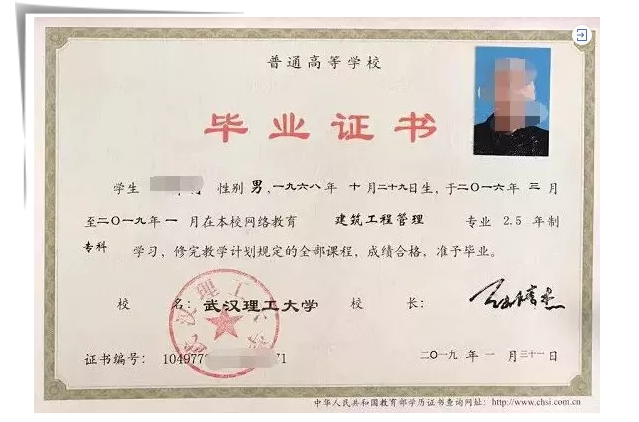 普通高等学校
毕业证书
学生 性别 男,一九六八年 十月二十九日生,于二〇一六年 三月
至二〇一九年 一 月在本校网络教育 建筑工程管理 专业 2.5 年制
专科 学习,修完教学计划规定的全部课程,成绩合格,准予毕业。
校 名:武汉理工大学 校 长:
证书编号: 104977 71 二〇一九年 一 月三十一日
中华人民共和国教育部学历证书查询网址: http://www.chsi.com.cn